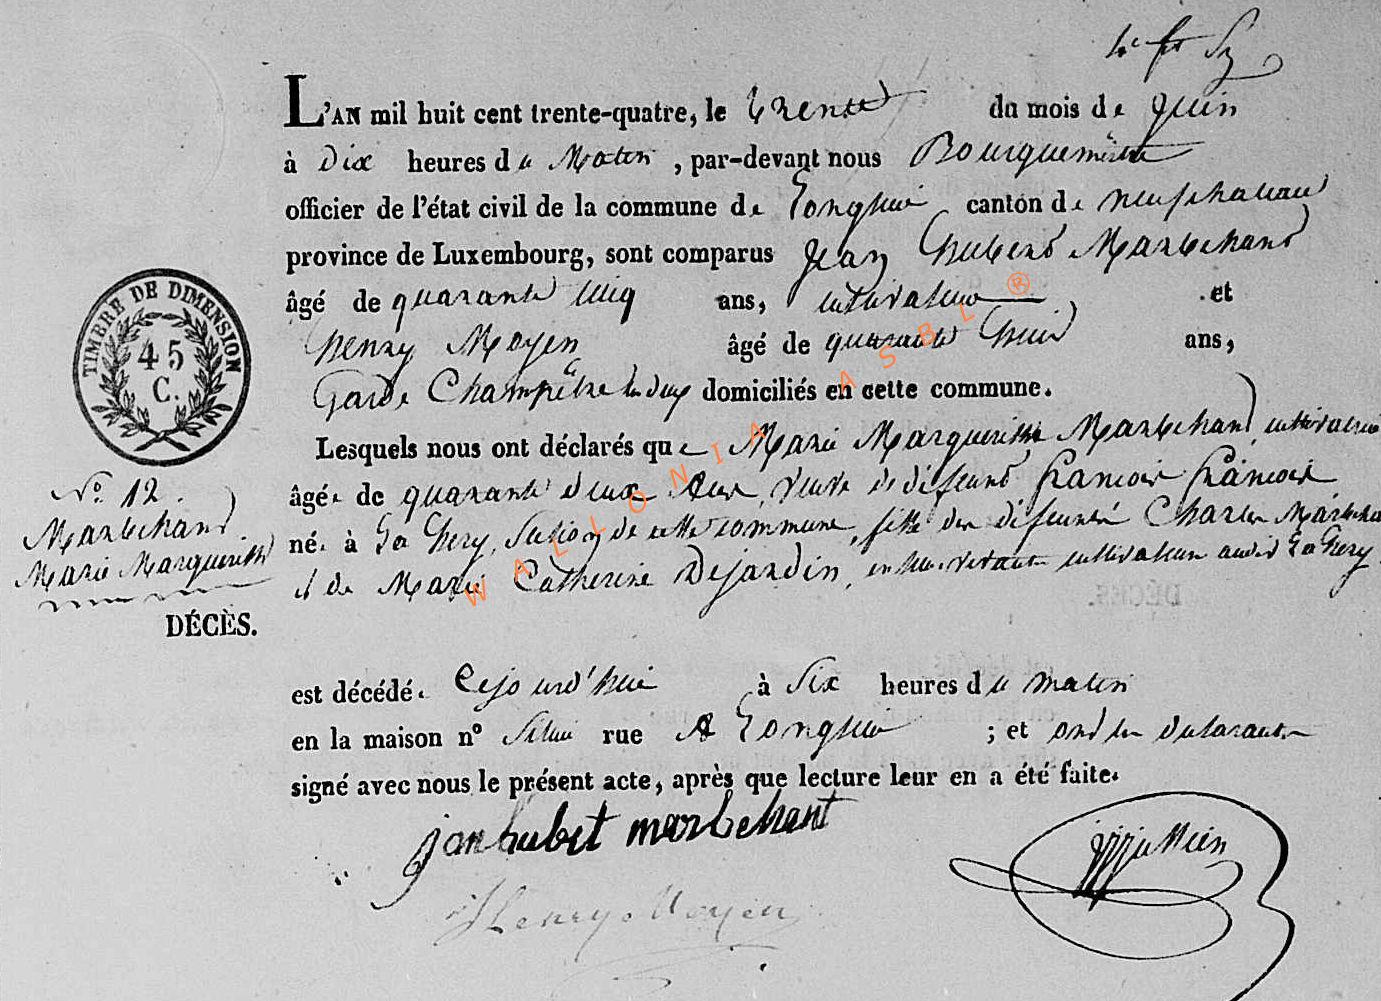 L'AN mil huit cent trente-quatre, le trente du mois de Juin
à Dix heures du Matin, par-devant nous Bourguemestre
officier de l'état civil de la commune de Longlier canton de neufchateau
province de Luxembourg, sont comparus Jean hubert Marlechant
âgé de quarante cinq ans, cultivateur et
henry Moyen âgé de quarante huit ans,
Garde Champêtre les deux domiciliés en cette commune.
Lesquels nous ont déclarés que Marie Margueritte Marlechant, cultivatrice
âgée de quarante deux Ans, veuve de défeunt francois francois
TIMBRE DE DIMENSION
45
C.
N° 12.
Marlechant
Marie Margueritte
DÉCÈS.
née à La hery, Section de cette commune, fille des défeunts Charles
et de Marie Catherine Dejardin, en leur vivant cultivateurs audit La hery
est décédée Cejourd'hui à Six heures du matin
en la maison n° rue A Longlier ; et ont les déclarants
signé avec nous le présent acte, après que lecture leur en a été faite.
jan hubet marlechant
Henry Moyen
WALLONIA ASBL ®